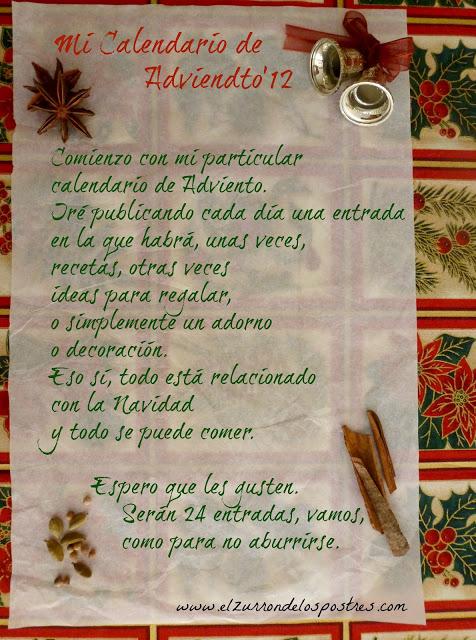 Mi Calendario de
Adviendto'12
Comienzo con mi particular
calendario de Adviento.
Iré publicando cada día una entrada
en la que habrá, unas veces,
recetas, otras veces
ideas para regalar,
o simplemente un adorno
o decoración.
Eso sí, todo está relacionado
con la Navidad
y todo se puede comer.
Espero que les gusten.
Serán 24 entradas, vamos,
como para no aburrirse.
www.elzurrondelospostres.com